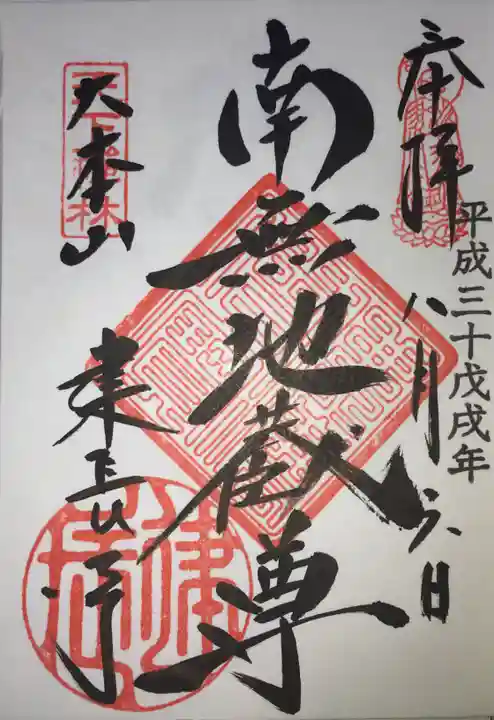 奉拝
平成三十戊戌年
八月六日
南無地蔵尊
天下禅林
大本山
建長寺
建長